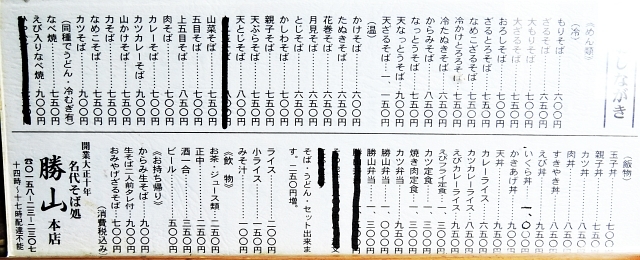 しながき
《めん類》
(冷)
もりそば……六〇〇円
ざるそば……六五〇円
大もりそば……七五〇円
大ざるそば……
おろしそば……七五〇円
ざるとろそば……七五〇円
なめこざるそば……七五〇円
冷かけとろろそば……七五〇円
冷たぬきそば……六五〇円
からみそば……八五〇円
なっとうそば……七五〇円
天なっとうそば……九〇〇円
天ざるそば…一、一五〇円
(温)
かけそば……六〇〇円
たぬきそば……六五〇円
花巻そば……六五〇円
月見そば……六五〇円
とじそば……六五〇円
かしわそば……七五〇円
親子そば……七五〇円
天ぷらそば……七五〇円
天とじそば……九〇〇円
山菜そば……七五〇円
五目そば……七五〇円
上五目そば……七五〇円
肉そば……七五〇円
カレーそば……七五〇円
カツカレーそば……九〇〇円
山かけそば……七五〇円
力そば……七五〇円
なめこそば……七五〇円
カツそば……九〇〇円
(同種でうどん・冷むぎ有)
なべ焼……九〇〇円
えび入りなべ焼…九〇〇円
《飯物》
玉子丼……七〇〇
親子丼……七五〇
カツ丼……九〇〇
肉丼……八五〇円
すきやき丼……八五〇円
えび丼……九五〇円
いくら丼……一、〇〇円
かきあげ丼……九〇〇円
天丼……九五〇円
カレーライス……七五〇円
カツカレーライス…九五〇円
えびカレーライス…九五〇円
えびフライ定食…一、三〇〇円
カツ定食……一、〇〇〇円
焼き肉定食……九〇〇円
カツ弁当……九五〇円
勝山弁当……一、〇〇〇円
勝山弁当……一、三〇〇円
そば・うどん・セット出来ます。二五〇円増。
ライス……二〇〇円
小ライス……一五〇円
みそ汁……一〇〇円
《飲物》
お茶・ジュース類…二五〇円
正中……二五〇円
酒一合……三五〇円
ビール……五五〇円
《お持ち帰り》
からみ生そば……九〇〇円
生そば二人前タレ付…九〇〇円
おみやげざるそば……七〇〇円
(消費税込み)
開業大正十年
名代そば処
勝山本店
☎〇一五八-二三-二三〇七
十四時〜十七時配達不能